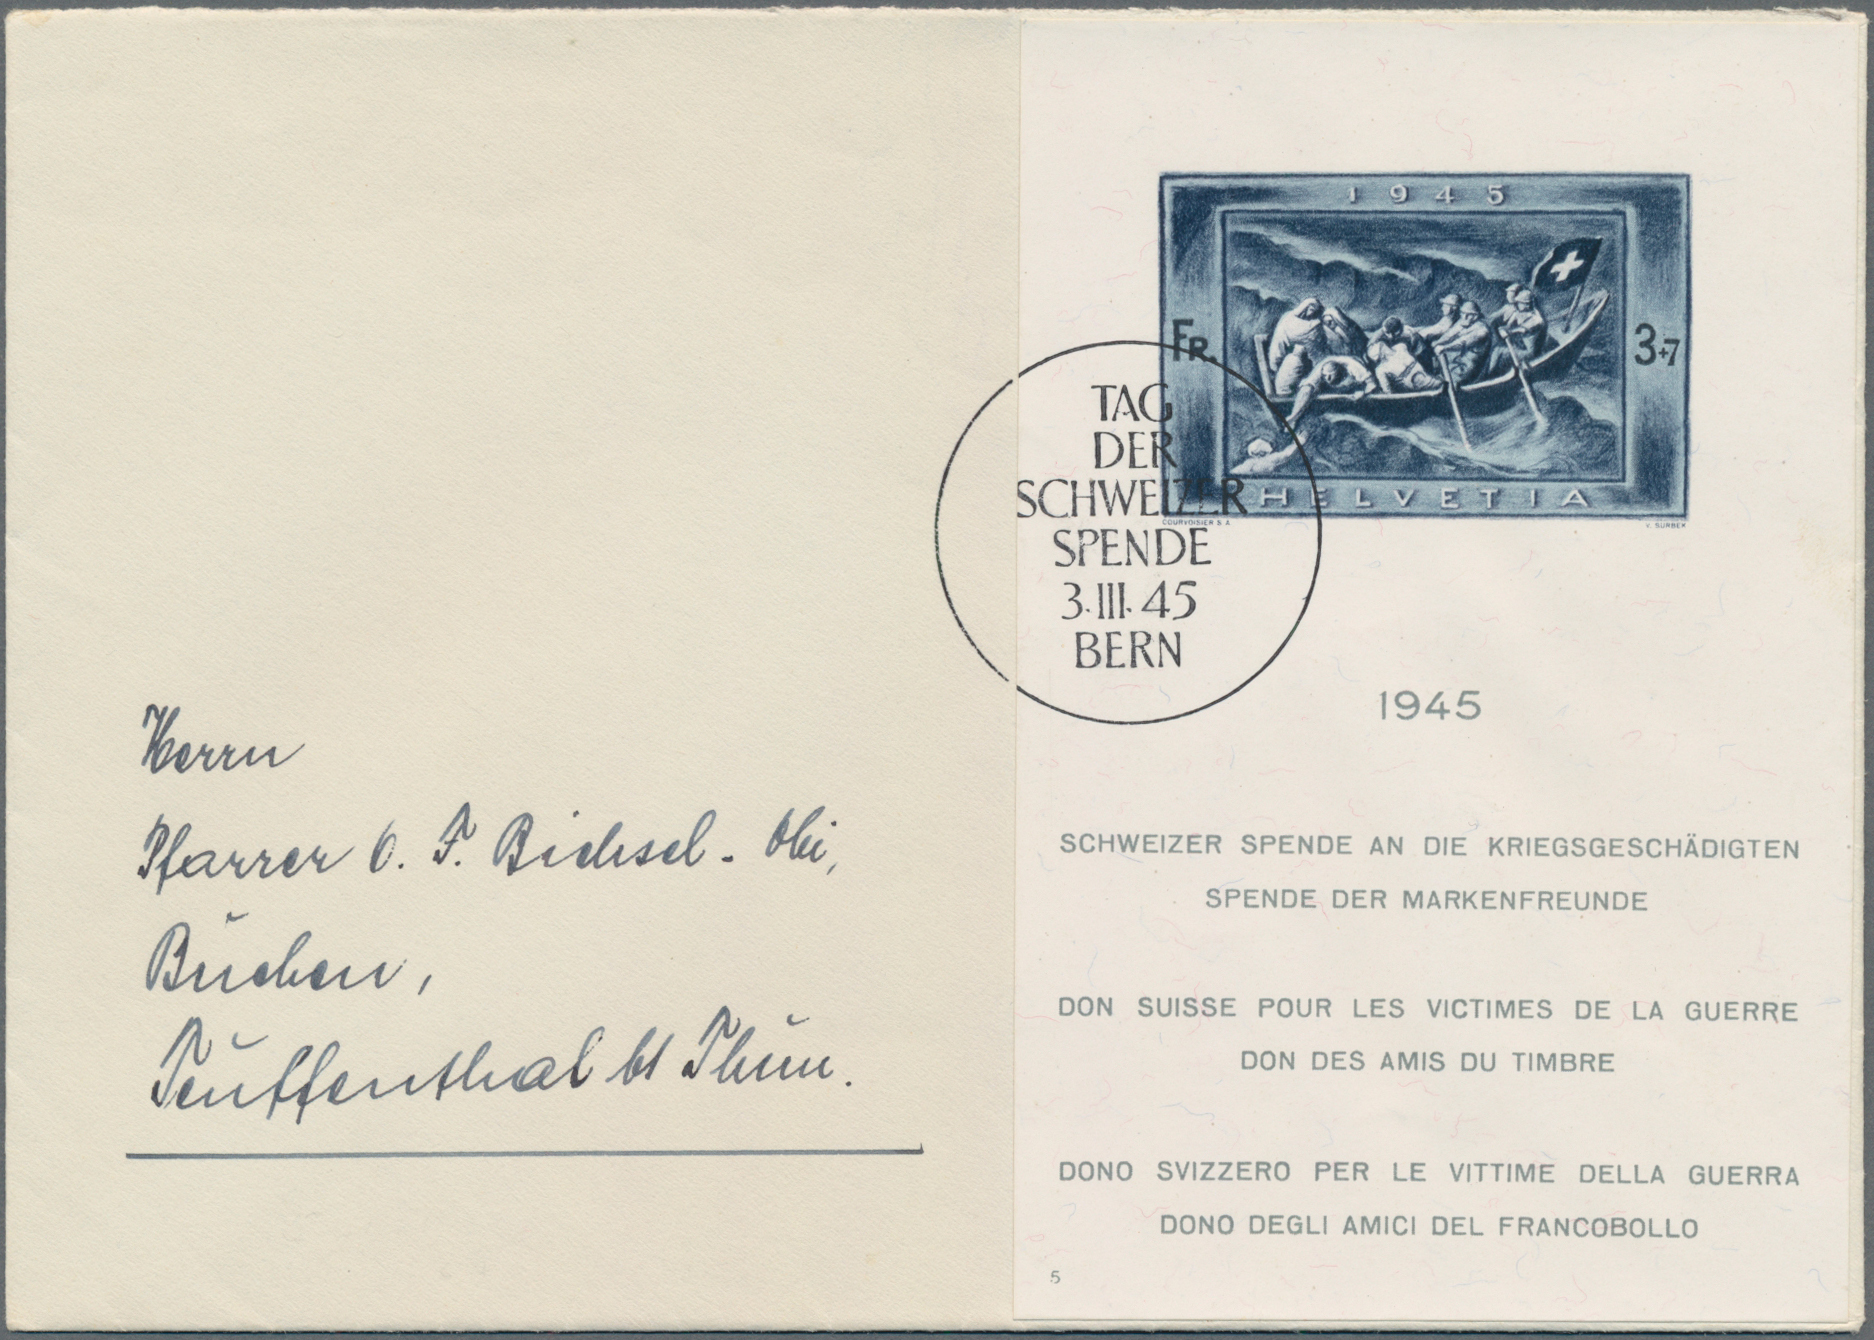 Herrn
Pfarrer O. F. Bichsel - Obi,
Buchen,
Teuffenthal bl Thun.
1945
FR. 3+7
HELVETIA
COURVOISIER S.A. V. SURBEK
TAG
DER
SCHWEIZER
SPENDE
3.III.45
BERN
1945
SCHWEIZER SPENDE AN DIE KRIEGSGESCHÄDIGTEN
SPENDE DER MARKENFREUNDE
DON SUISSE POUR LES VICTIMES DE LA GUERRE
DON DES AMIS DU TIMBRE
DONO SVIZZERO PER LE VITTIME DELLA GUERRA
DONO DEGLI AMICI DEL FRANCOBOLLO
5